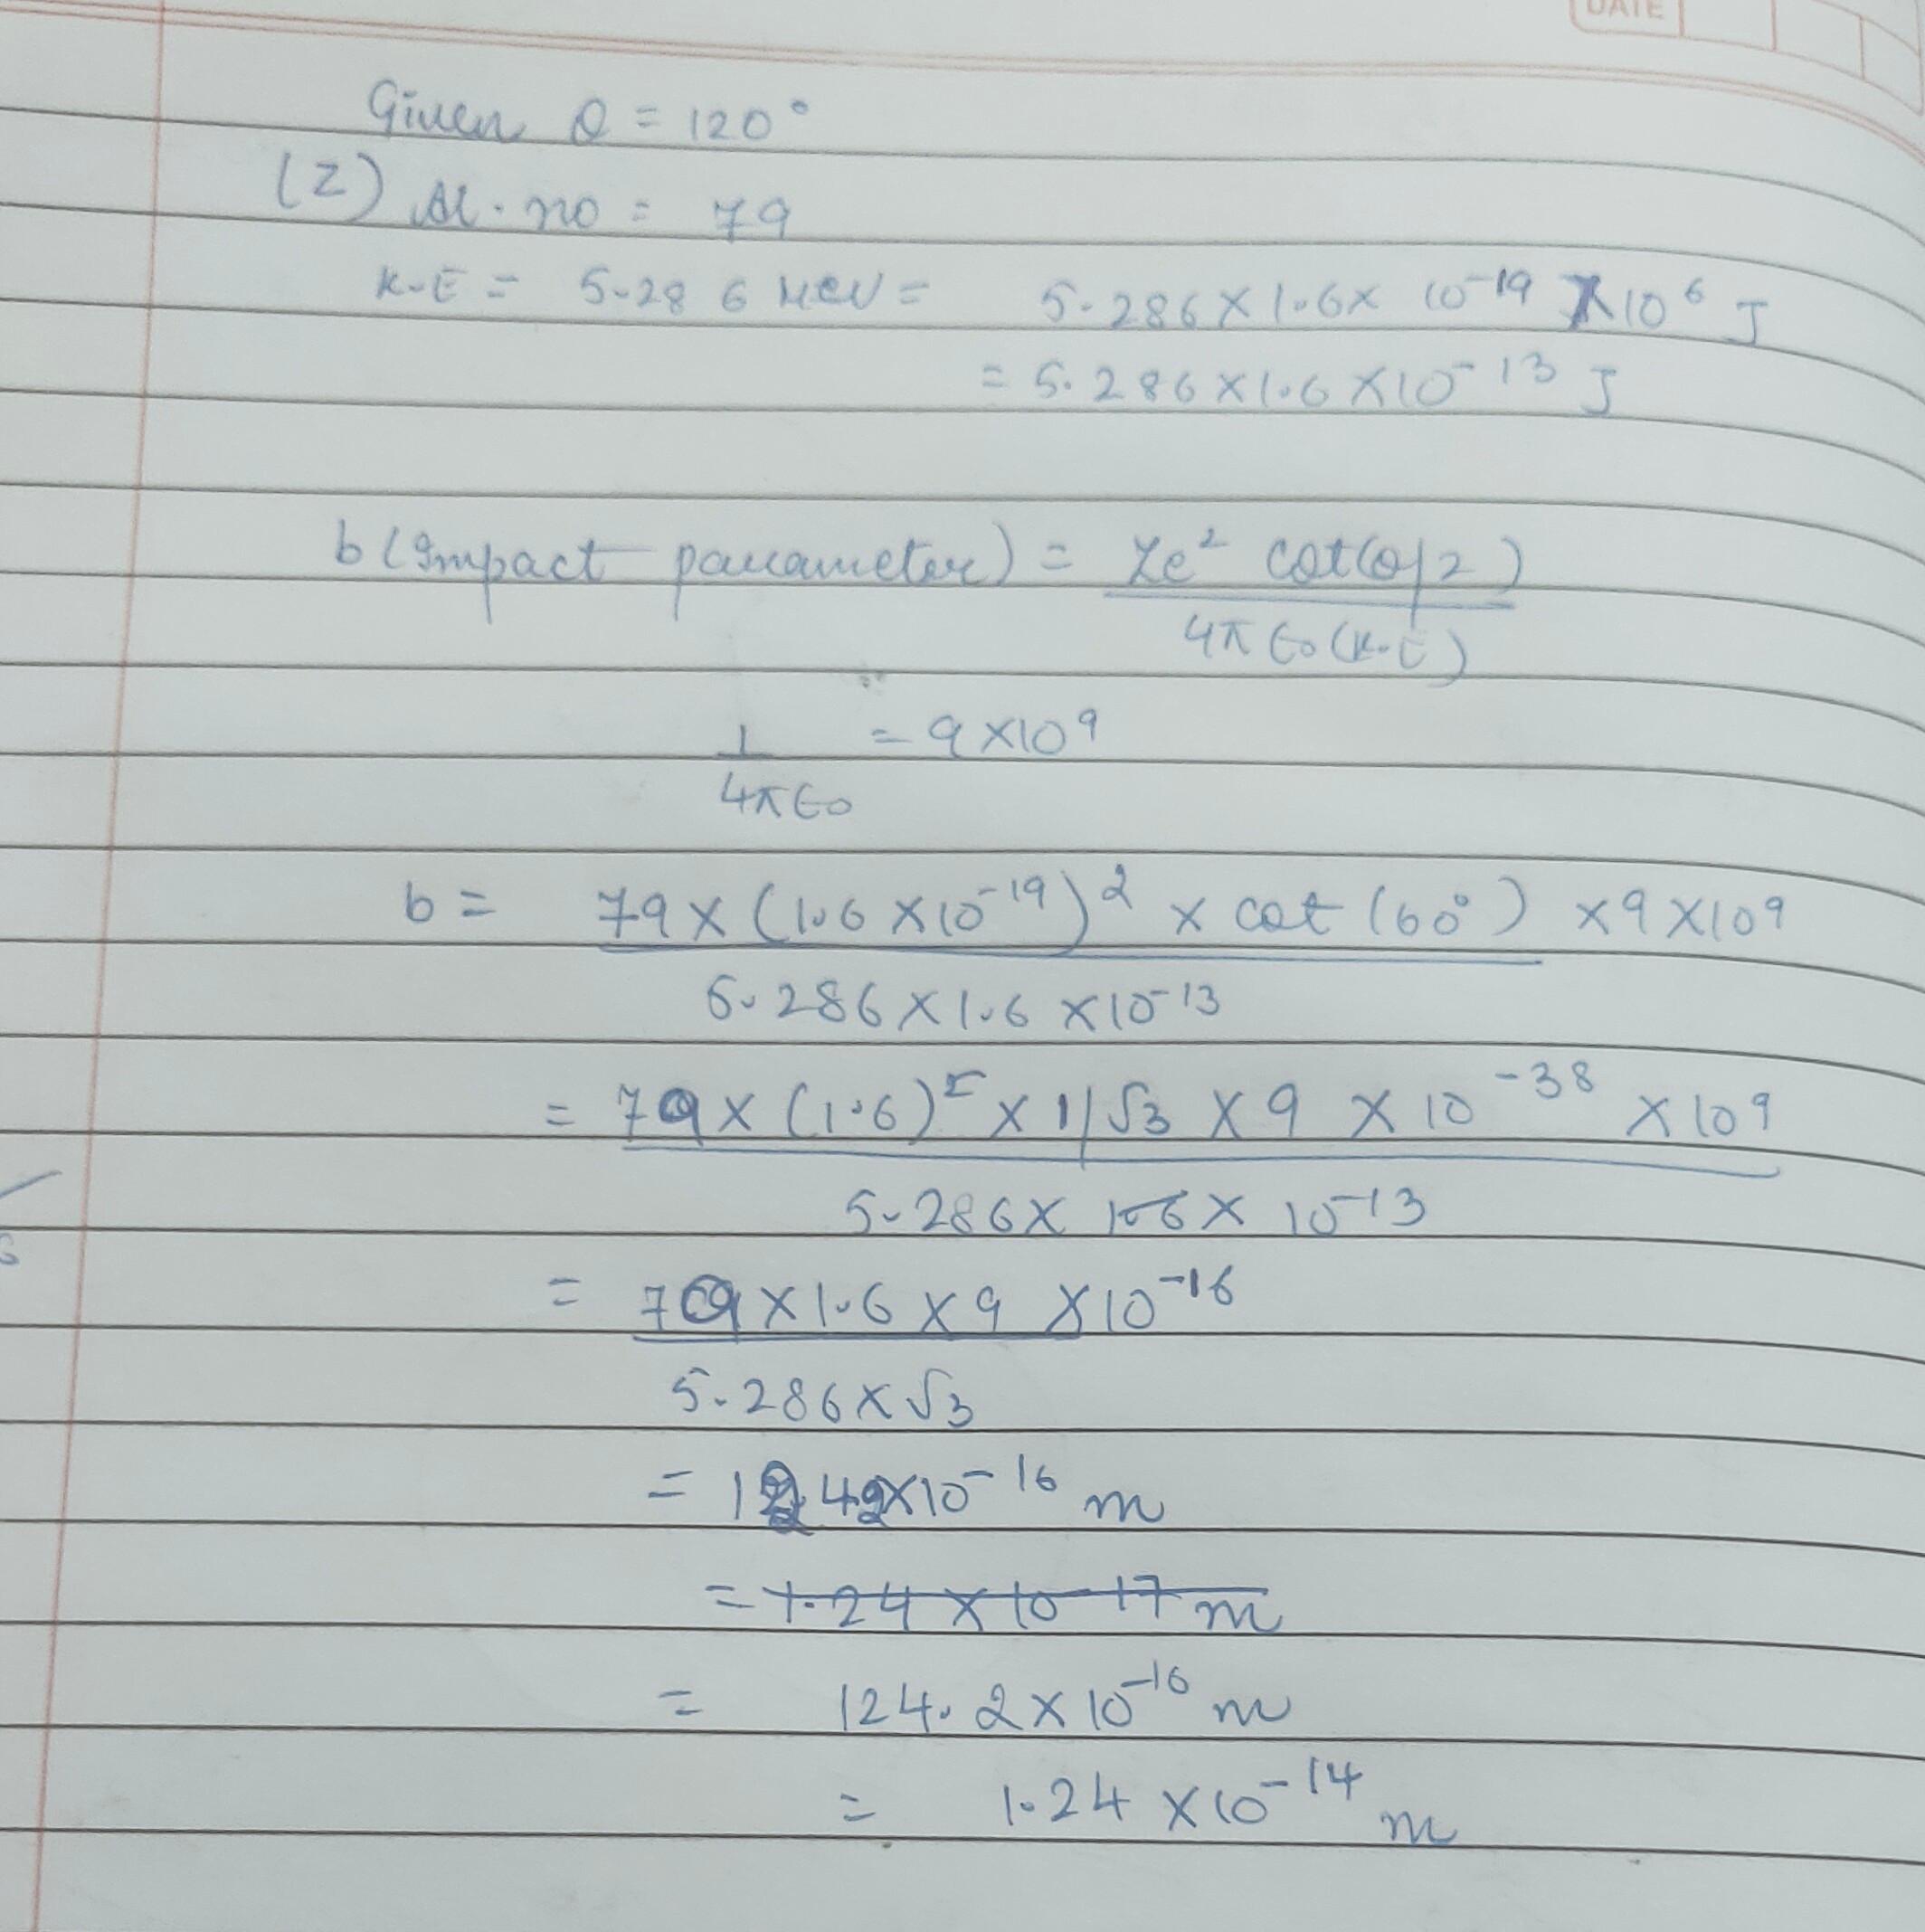 DATE
Given θ = 120°
(Z) At. no = 79
K.E = 5.286 MeV = 5.286 × 1.6 × 10⁻¹⁹ × 10⁶ J
= 5.286 × 1.6 × 10⁻¹³ J
b (Impact parameter) = Ze² cot(θ/2)
4π ϵ₀ (K.E)
1 = 9 × 10⁹
4πϵ₀
b = 79 × (1.6 × 10⁻¹⁹)² × cot (60°) × 9 × 10⁹
5.286 × 1.6 × 10⁻¹³
= 79 × (1.6)² × 1/√3 × 9 × 10⁻³⁸ × 10⁹
5.286 × 1.6 × 10⁻¹³
= 79 × 1.6 × 9 × 10⁻¹⁶
5.286 × √3
= 124.2 × 10⁻¹⁶ m
= 1.24 × 10⁻¹⁷ m
= 124.2 × 10⁻¹⁶ m
= 1.24 × 10⁻¹⁴ m